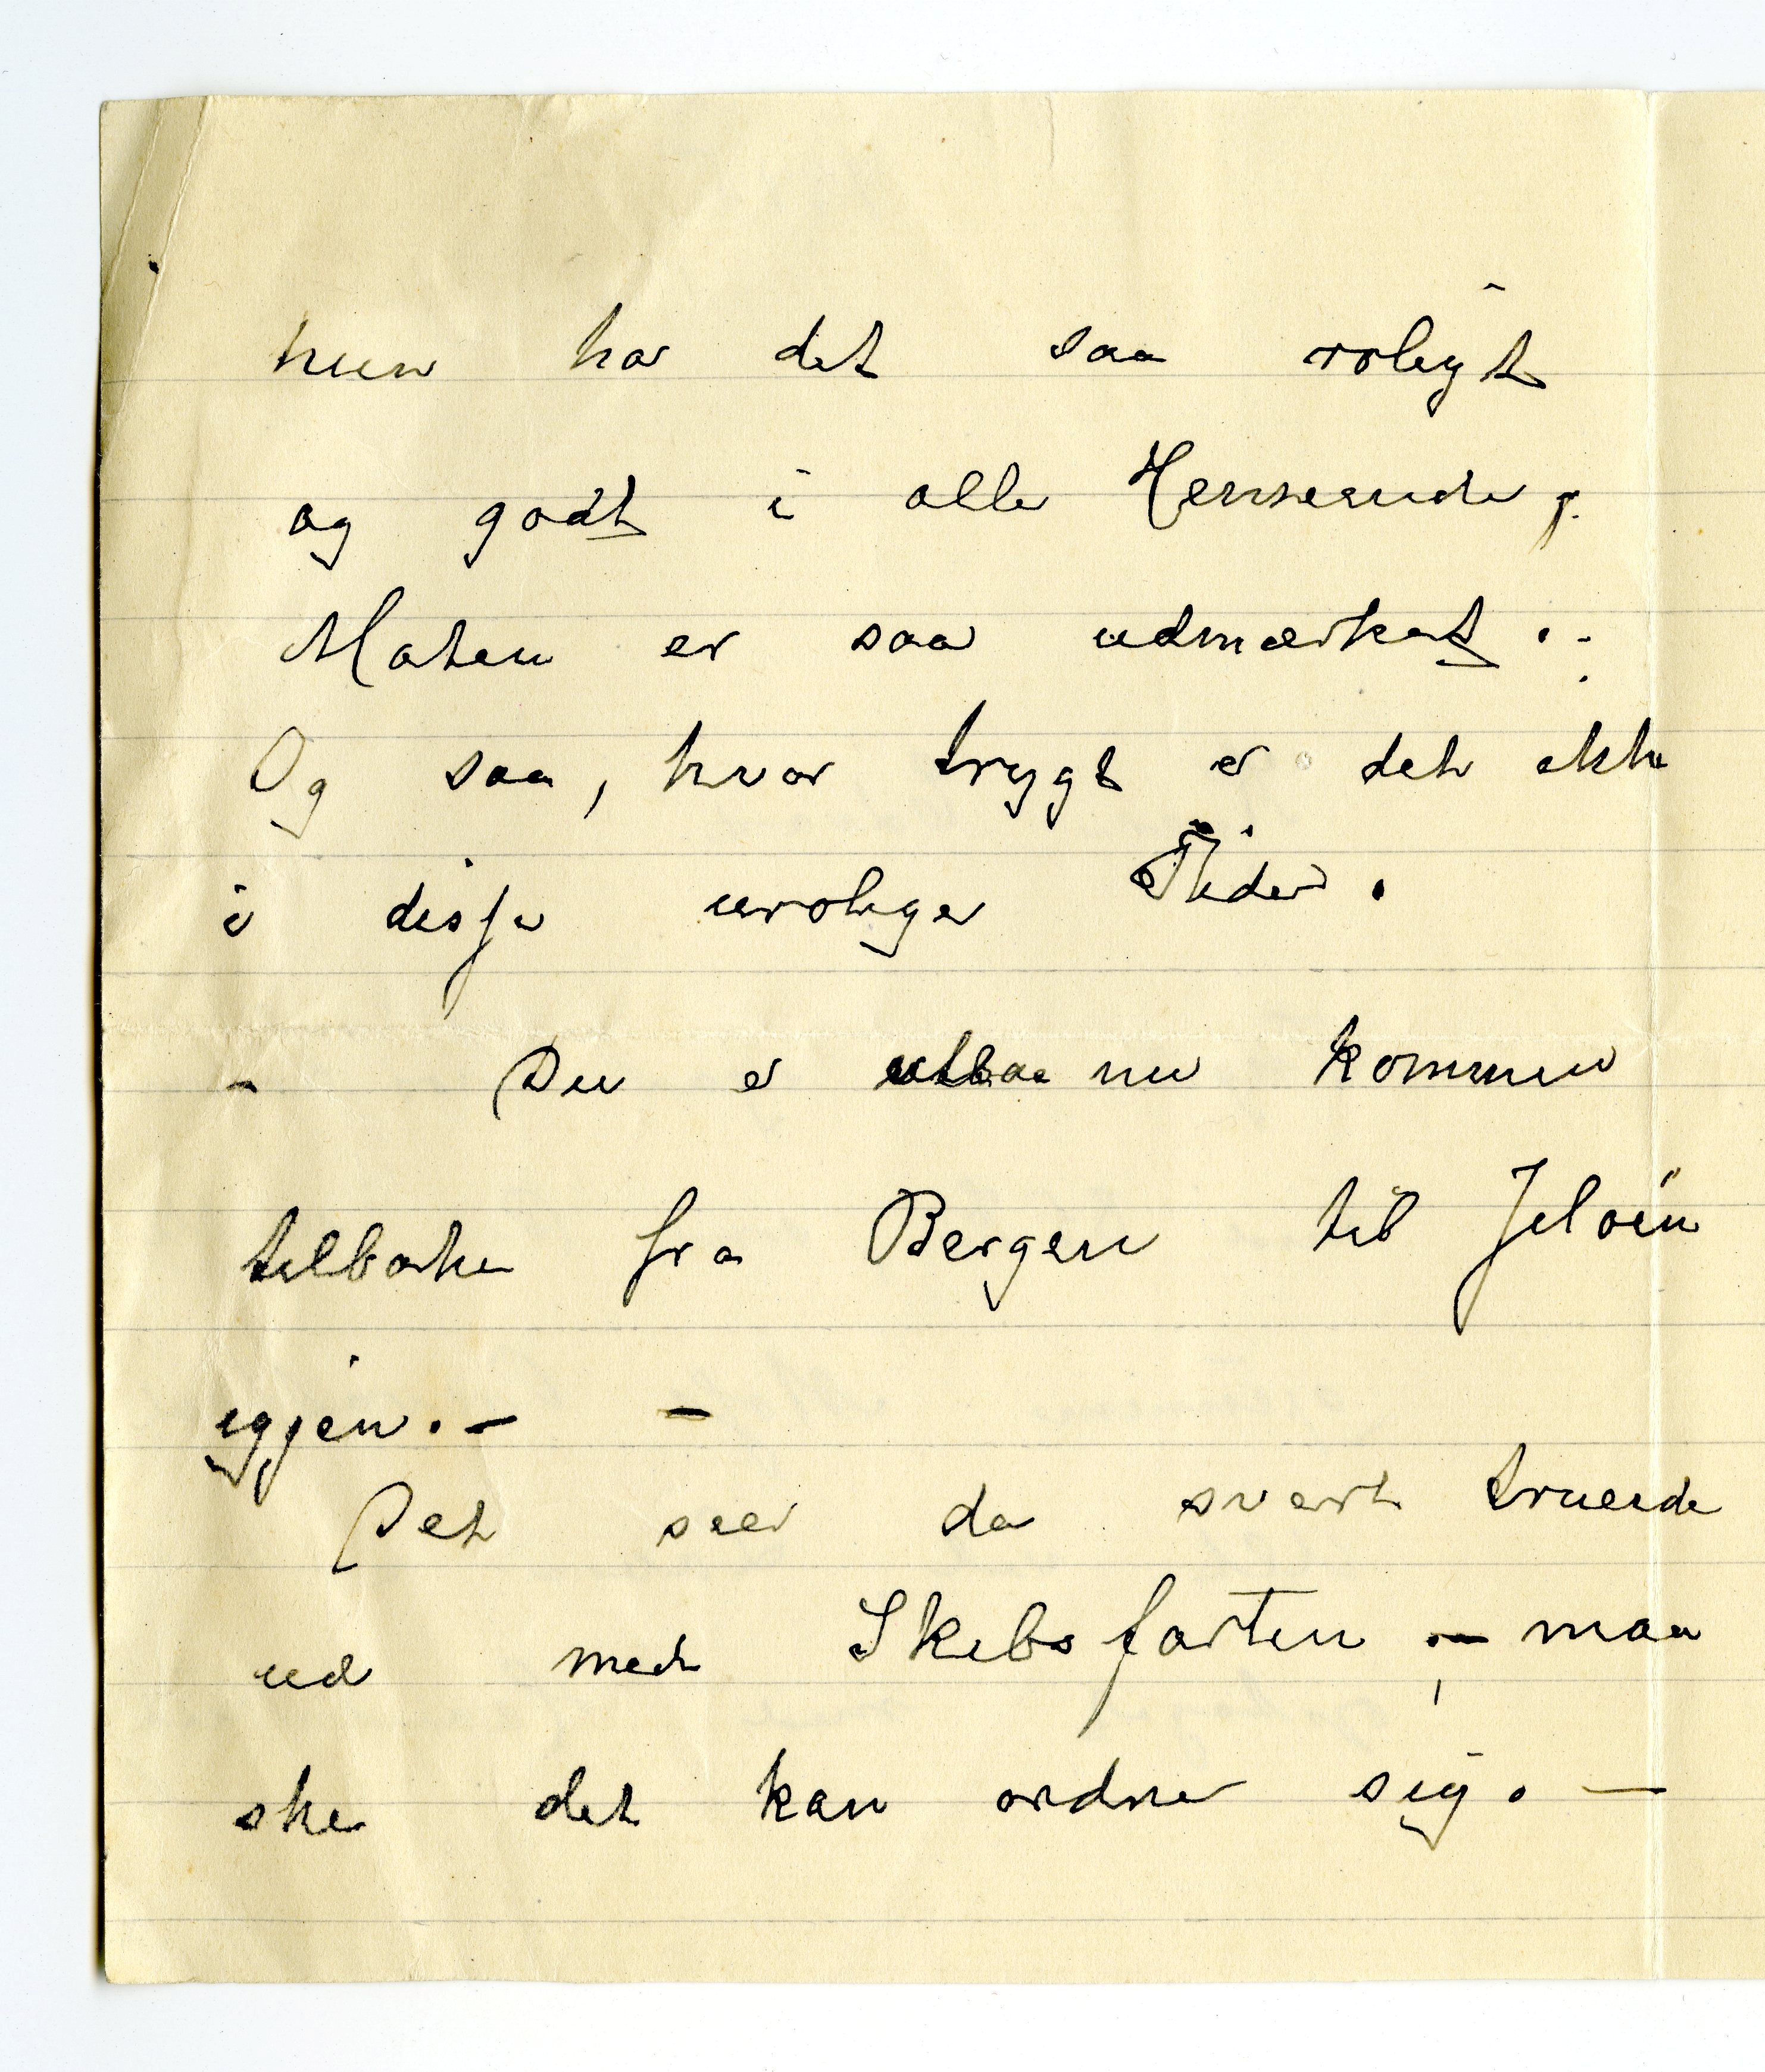 hun har det saa roligt
og godt i alle Henseende,.
Maten er saa udmærket .-
Og saa, hvor trygt er det ikke
i disse urolige Tider.
- Du er altsaa nu kommen
tilbake fra Bergen til Jeløen
iggjen.- -
Det seer da svært truende
ud med Skibsfarten ;- maa
ske det kan ordne sig. -